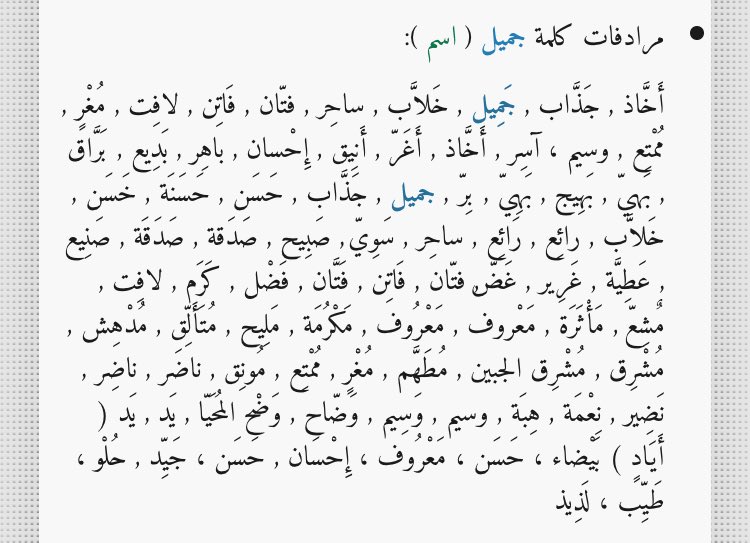 مرادفات كلمة جميل ( اسم ):
أَخَّاذ , جَذَّاب , جَمِيل , خَلاَّب , ساحِر , فتّان , فَاتِن , لافِت , مُغْرٍ ,
مُمْتِع , وسيم ، آسِر , أَخَّاذ , أَغَرّ , أَنِيق , إِحْسان , باهِر , بَدِيع , بَرَّاق
, بَهيّ , بَهِيج , بَهِيّ , بِرّ , جميل , جَذَّاب , حَسَن , حَسَنَة , حَسَن ,
خَلاَّب , رائِع , رَائِع , ساحِر , سَوِيّ , صَبِيح , صَدَقة , صَدَقَة , صَنِيع
, عَطِيَّة , غَرِير , غَضّ, فتّان , فَاتِن , فَتَّان , فَضْل , كَرَم , لافِت ,
مُشِعّ , مَأْثَرَة , مَعْروف , مَعْرُوف , مَكْرُمَة , مَلِيح , مُتَأَلِّق , مُدْهِش ,
مُشْرِق , مُشْرِق الجبين , مُطَهَّم , مُغْرٍ , مُمْتِع , مُونِق , ناضَر , ناضِر ,
نَضِير , نِعْمَة , هِبَة , وسيم , وَسِيم , وَضّاح , وَضْح المُحَيّا , يَد , يَد (
أَيَادٍ ) بَيْضاء ، حَسَن ، مَعْرُوف ، إِحْسَان , حَسَن ، جَيِّد , حُلْو ،
طَيِّب ، لَذِيذ